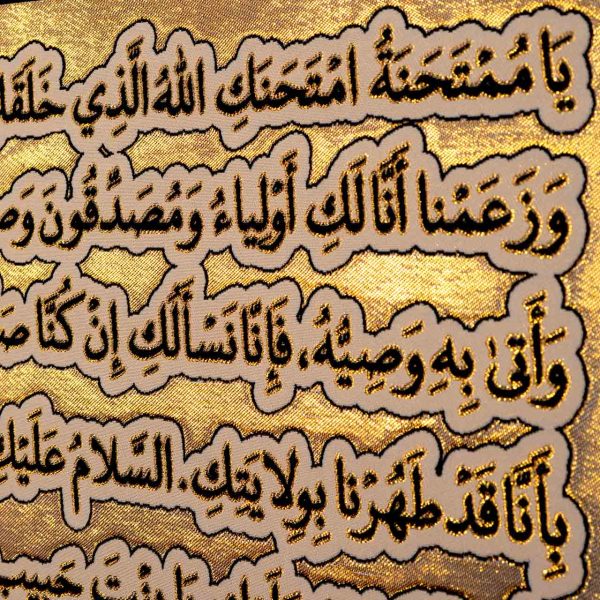 يَا مُمْتَحَنَةُ امْتَحَنَكِ اللهُ الَّذِي
وَزَعَمْنا أَنَّا لَكِ أَوْلِياءُ وَمُصَدِّقُونَ
وَأَتىٰ بِهِ وَصِيُّهُ، فَإِنَّا نَسْأَلُكِ إِنْ كُنَّا
بِأَنَّا قَدْ طَهُرْنا بِوِلايَتِكِ. السَّلامُ عَلَيْكِ